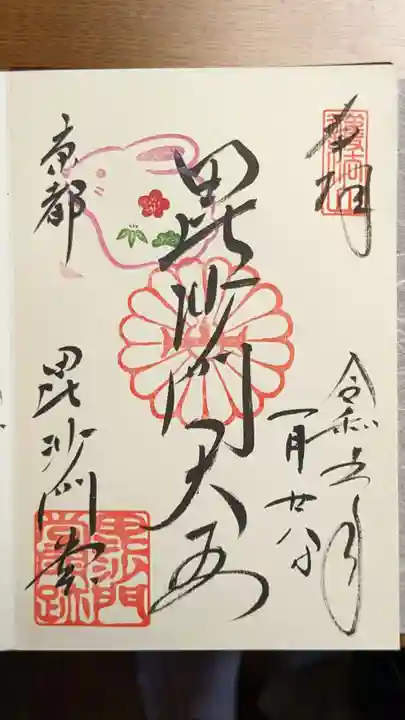 奉拝
令和五年
一月廿八日
毘沙門天
京都
毘沙門堂
毘沙門
堂門跡